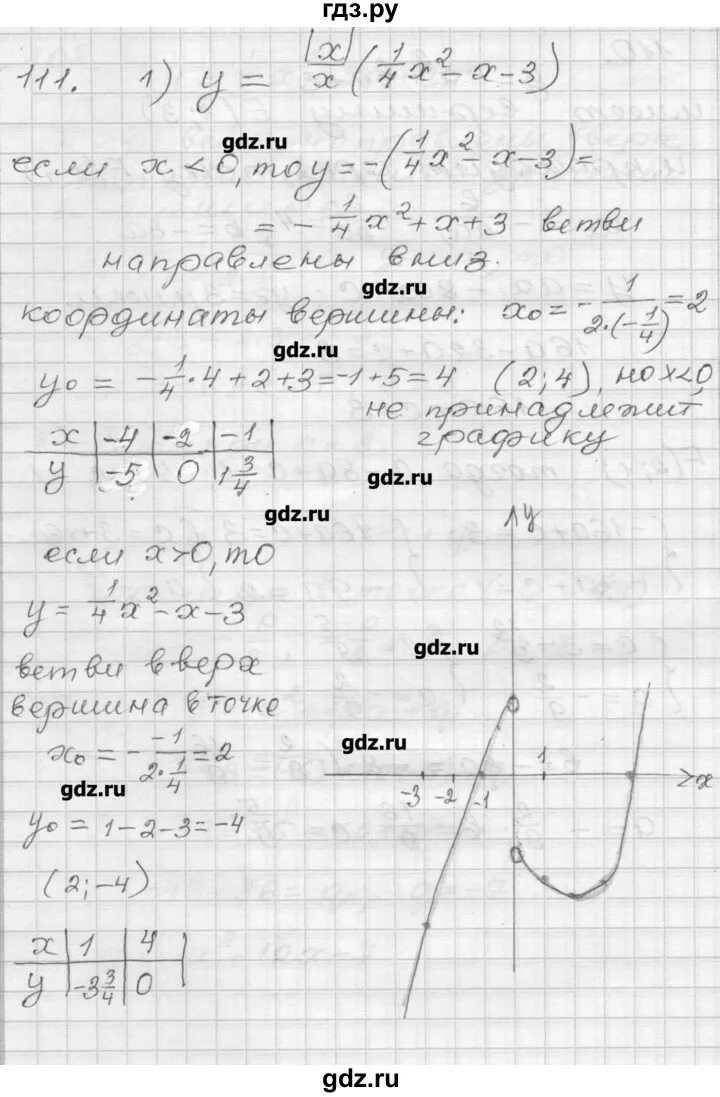 гдз.ру
111. 1) y = |x|/x (1/4 x² - x - 3)
gdz.ru
если x < 0, то y = -(1/4 x² - x - 3) =
= - 1/4 x² + x + 3 ветви
направлены вниз.
gdz.ru
координаты вершины: x₀ = - 1/(2·(-1/4)) = 2
gdz.ru
y₀ = - 1/4 · 4 + 2 + 3 = -1 + 5 = 4 (2; 4), но x < 0,
не принадлежит
графику
x | -4 | -2 | -1
y | -5 | 0 | 1 3/4
gdz.ru
gdz.ru
y
если x > 0, то
y = 1/4 x² - x - 3
gdz.ru
ветви вверх
вершина в точке
x₀ = - -1/(2·1/4) = 2
gdz.ru
-3 -2 -1 1 x
gdz.ru
y₀ = 1 - 2 - 3 = -4
(2; -4)
x | 1 | 4
y | -3 3/4 | 0
gdz.ru